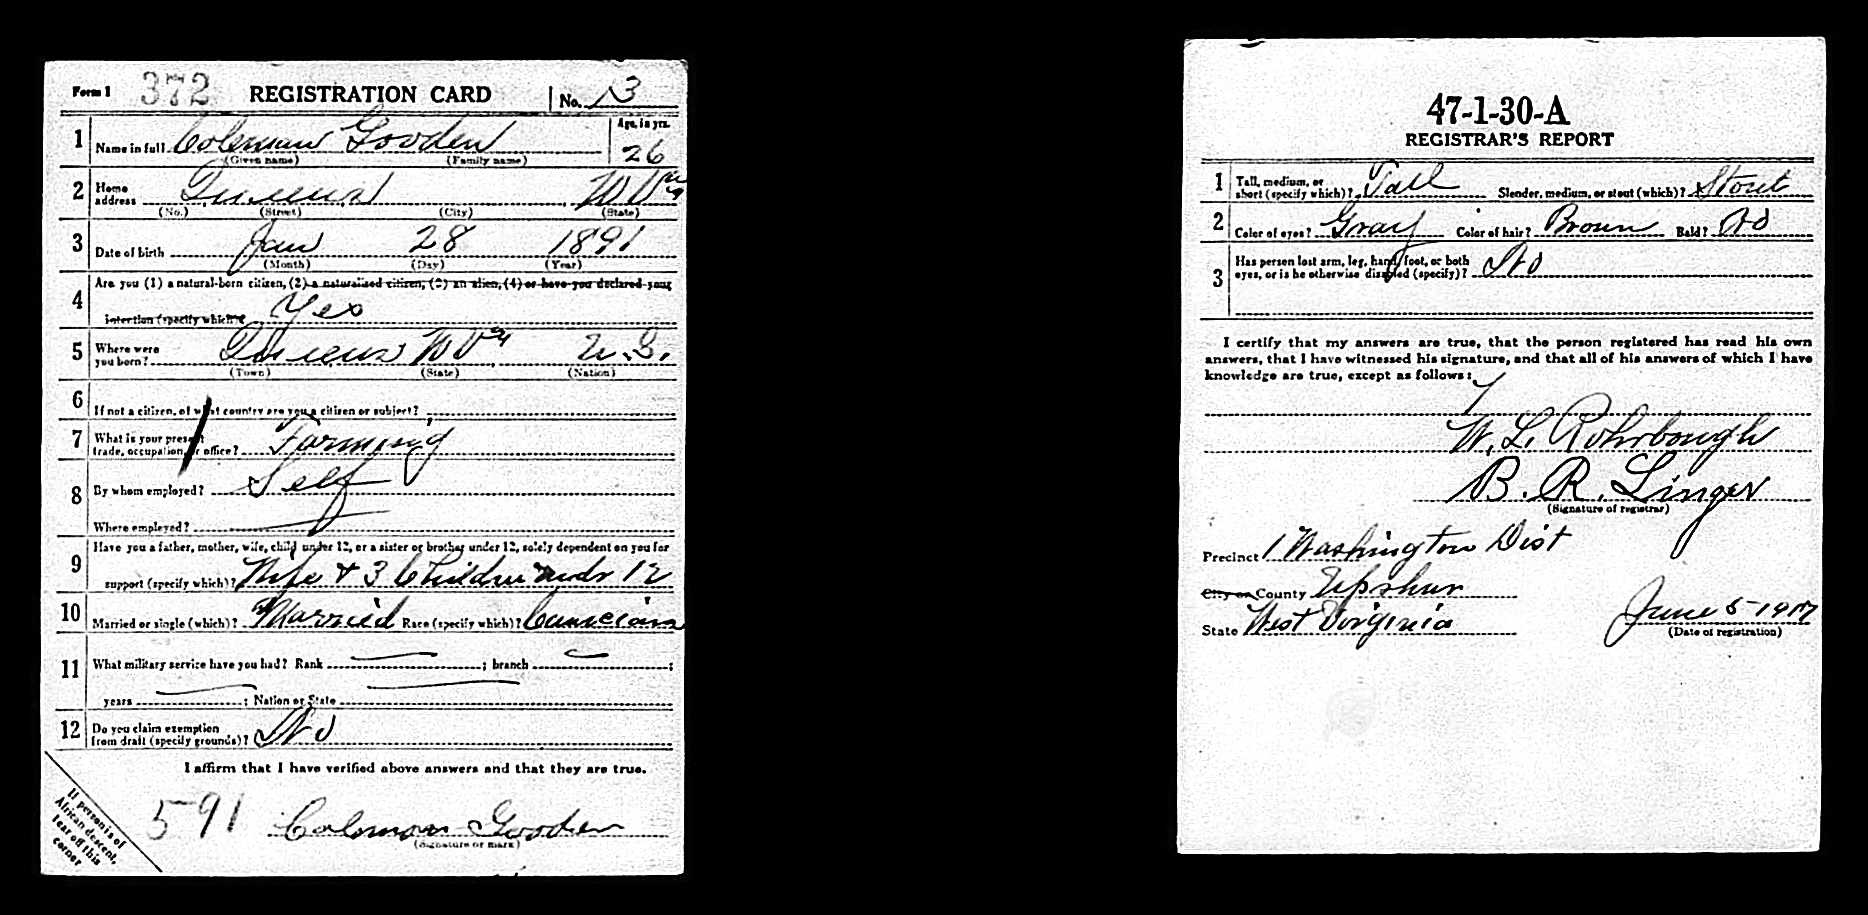 Form 1 372 REGISTRATION CARD No. 13
1 Name in full Coleman Gooden Age, in yrs. 26
(Given name) (Family name)
2 Home address Queens W Va
(No.) (Street) (City) (State)
3 Date of birth Jan 28 1891
(Month) (Day) (Year)
4 Are you (1) a natural-born citizen, (2) a naturalized citizen, (3) an alien, (4) or have you declared your
intention (specify which)? Yes
5 Where were you born? Queens W Va U.S.
(Town) (State) (Nation)
6 If not a citizen, of what country are you a citizen or subject?
7 What is your present trade, occupation, or office? Farming
8 By whom employed? Self
Where employed?
9 Have you a father, mother, wife, child under 12, or a sister or brother under 12, solely dependent on you for
support (specify which)? Wife & 3 Children undr 12
10 Married or single (which)? Married Race (specify which)?
11 What military service have you had? Rank ; branch ;
years ; Nation or State
12 Do you claim exemption from draft (specify grounds)? No
I affirm that I have verified above answers and that they are true.
591 Coleman Gooden
(Signature or mark)
If person is of
African descent,
tear off this
corner
47-1-30-A
REGISTRAR'S REPORT
1 Tall, medium, or short (specify which)? Tall Slender, medium, or stout (which)? Stout
2 Color of eyes? Gray Color of hair? Brown Bald? No
3 Has person lost arm, leg, hand, foot, or both eyes, or is he otherwise disabled (specify)? No
I certify that my answers are true, that the person registered has read his own
answers, that I have witnessed his signature, and that all of his answers of which I have
knowledge are true, except as follows:
W. L. Rohrbough
B. R. Linger
(Signature of registrar)
Precinct 1 Washington Dist
City or County Upshur
State West Virginia June 5-1917
(Date of registration)